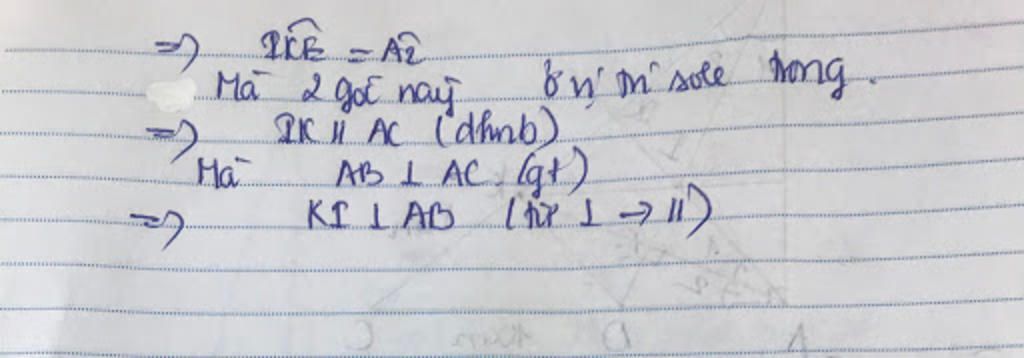 => IKE^ = A2^
Mà 2 góc này ở vị trí sole trong.
=> IK // AC (dhnb)
Mà AB ⊥ AC (gt)
=> KI ⊥ AB (từ ⊥ → //)